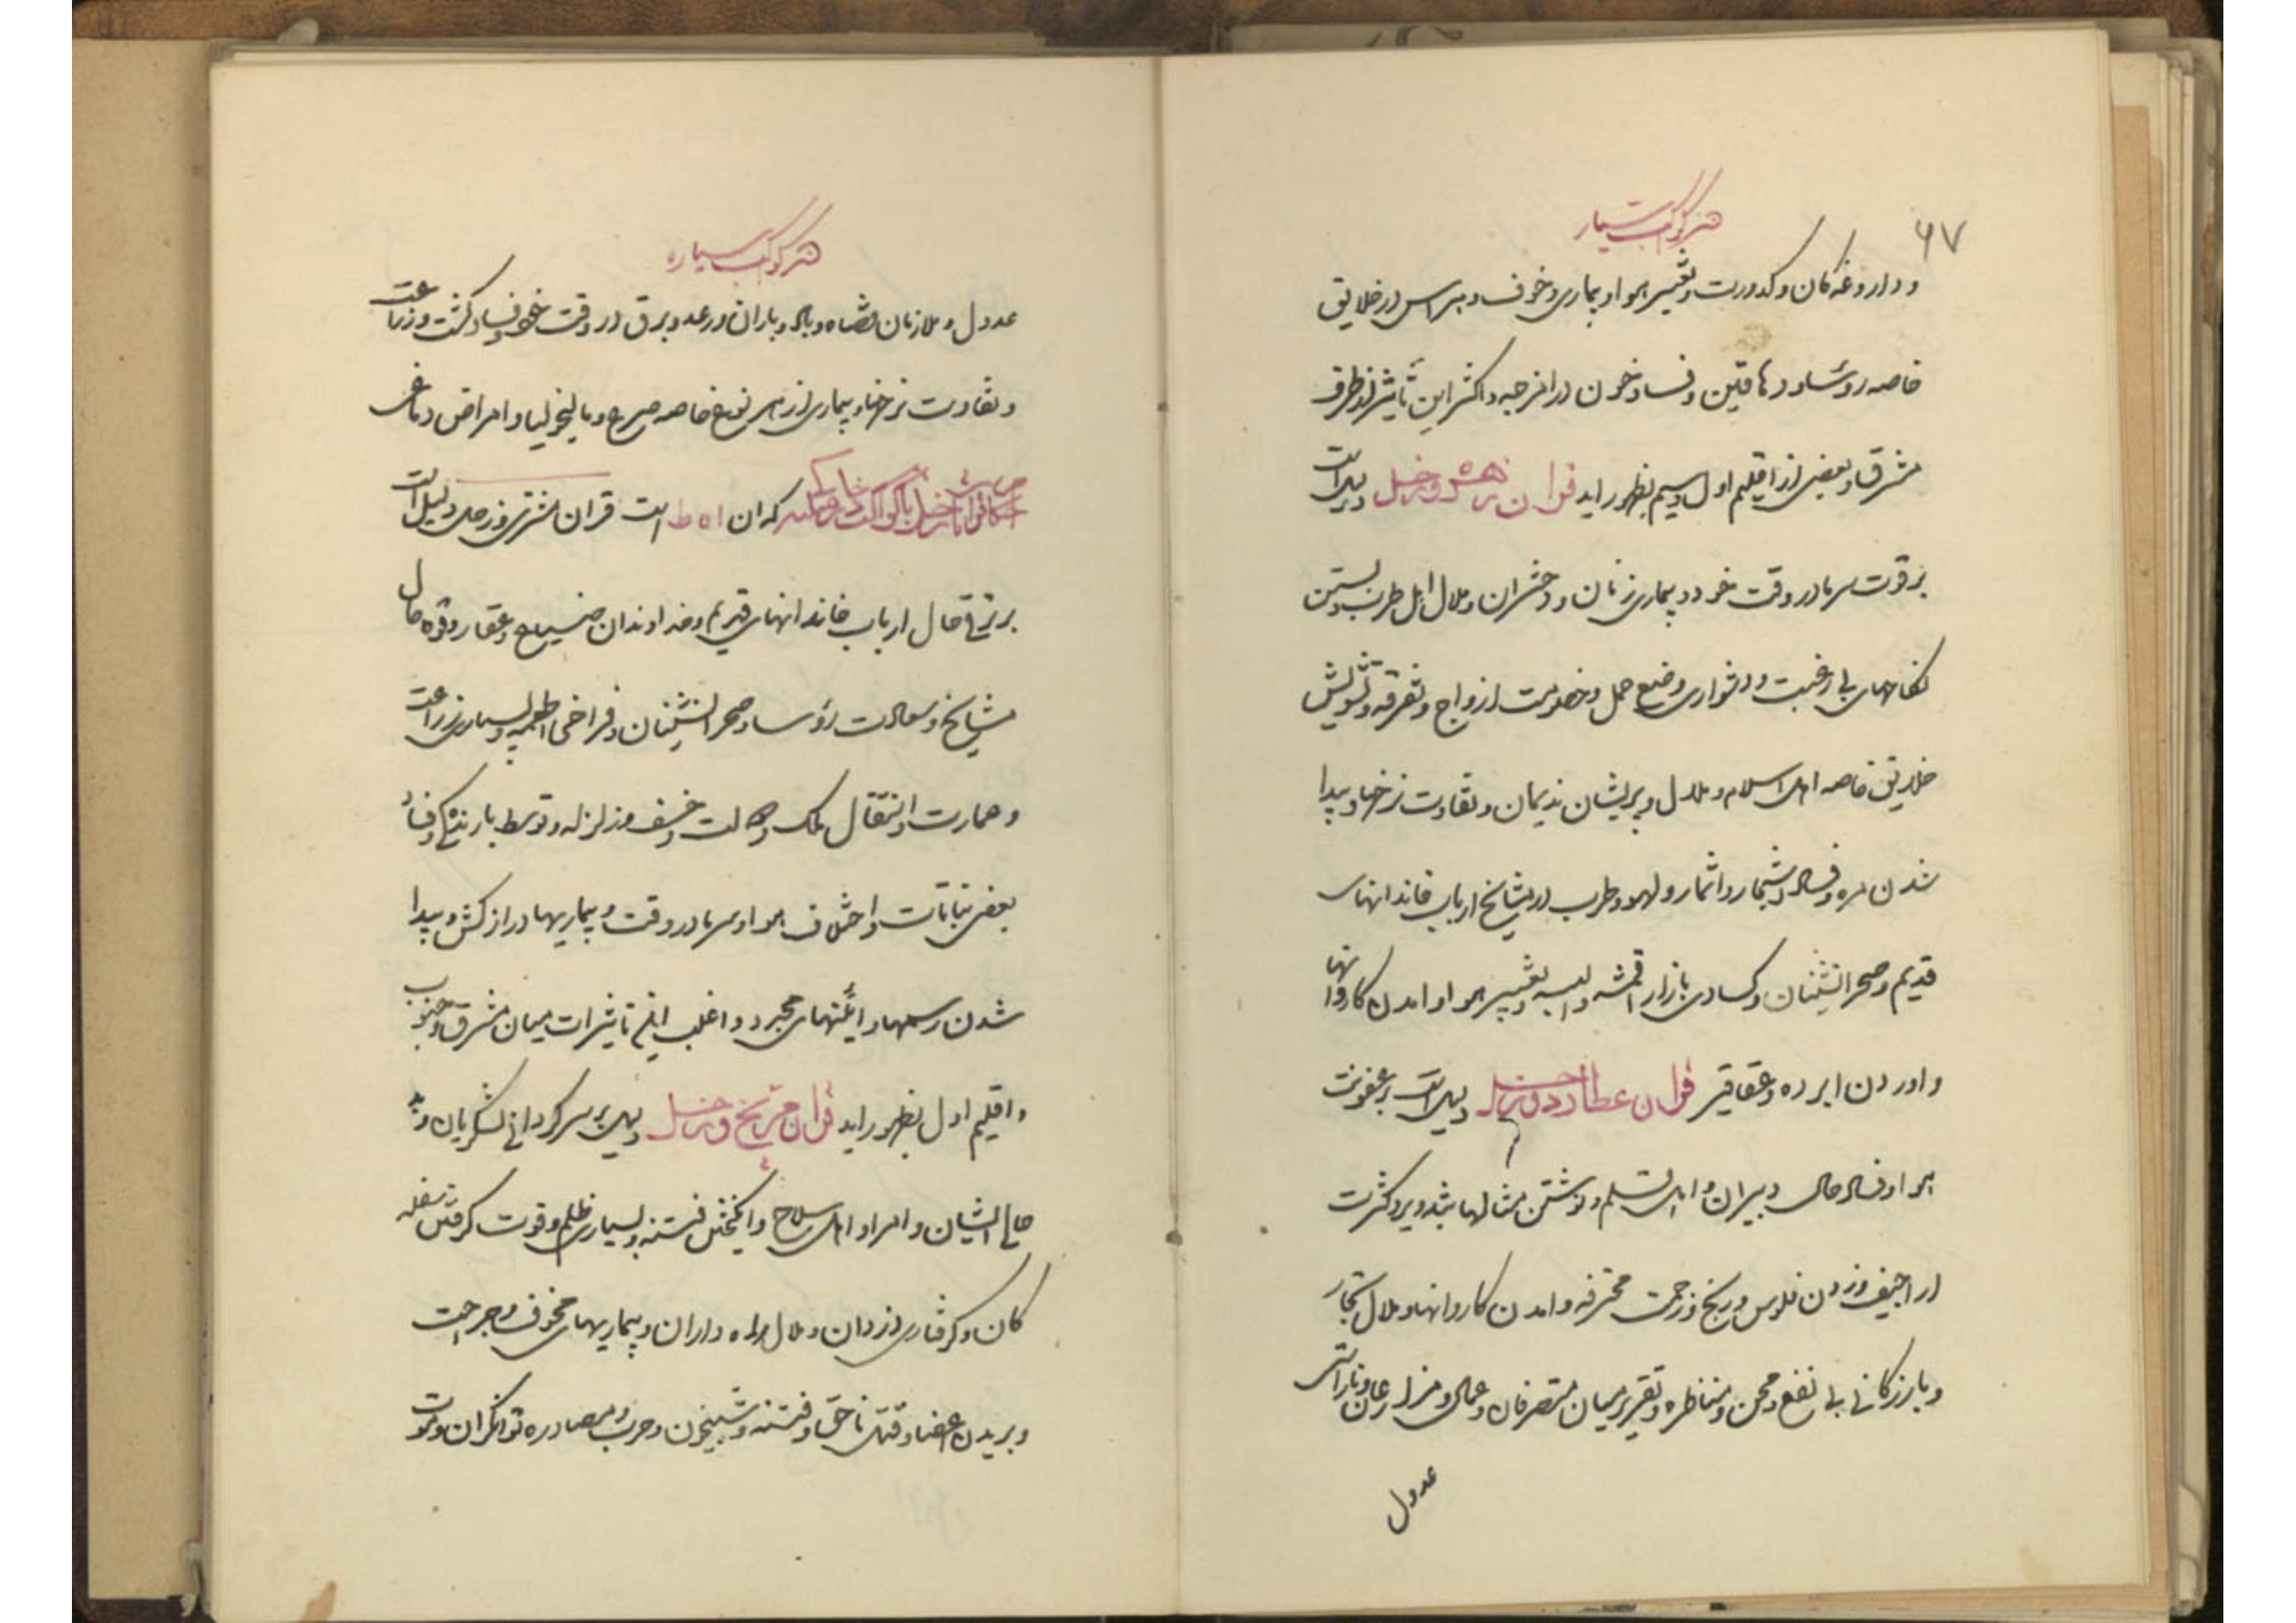 ۶۷
هر کوکب سیار
و داروغه کان و کدورت و تغییر هوا و بیماری و خوف و هراس در خلایق
خاصه روسا و دهاقین و فساد خون در امزجه و اکثر این تأثیر از طرف
مشرق و بعضی از اقلیم اول و سیم بظهور اید قران زهره و زحل دلیل است
بر قوت سرما در وقت خود و بیماری زنان و دختران و ملال اهل طرب و بستن
نکاحهای بی رغبت و دشواری وضع حمل و خصومت ازواج و تفرقه و تشویش
خلایق خاصه اهل اسلام و ملال و پریشان ندیمان و تفاوت نرخها و پیدا
شدن و فساد اشجار و اثمار و لهو و طرب در مشایخ ارباب خاندانهای
قدیم و صحرانشینان و کسادی بازار اقمشه و البسه و تغییر هوا و امدن کاروانها
و اوردن ابرده و عقاقیر قران عطارد و زحل دلیل است بر عفونت
هوا و فساد حال دبیران و اهل قلم و نوشتن مثالها بتزویر و کثرت
اراجیف و زدن فلوس و رنج و زحمت محترفه و امدن کاروانها و ملال تجار
و بازرکانی بی نفع و محن و مناظره و تقریر میان متصرفان و عمال و مزارعان و ناراستی
عدول
هر کوکب سیاره
عدول و ملازمان قضاه و باد و باران و رعد و برق در وقت خود و فساد کشت و زراعت
و تفاوت نرخها و بیماری از هر نوع خاصه صرع و مالیخولیا و امراض دماغی
احکام قرانات زحل با کواکب که ان ا ه ط است قران مشتری و زحل دلیل است
بر ترقی حال ارباب خاندانهای قدیم و خداوندان ضیاع و عقار و قوه حال
مشایخ و سعادت رؤسا و صحرانشینان و فراخی اطعمه و بسیاری زراعت
و عمارت و انتقال ملک و خسف و زلزله و توسط بارندکی و فساد
بعضی نباتات و اختلاف هوا و سرما در وقت و بیماریها دراز کش و پیدا
شدن رسمها و ائینهای مجدد و اغلب این تاثیرات میان مشرق و جنوب
و اقلیم اول بظهور اید قران مریخ و زحل دلیل بر سرکردانی لشکریان و بد
حالی ایشان و امرا و اهل سلاح و انکیختن فتنه و بسیاری ظلم و قوت کرفتن سفله
کان و کرفتاری دزدان و ملال راه داران و بیماریهای مخوف و جراحت
و بریدن اعضا و قتل ناحق و فتنه و شبیخون و حرب و مصادره توانکران و موت